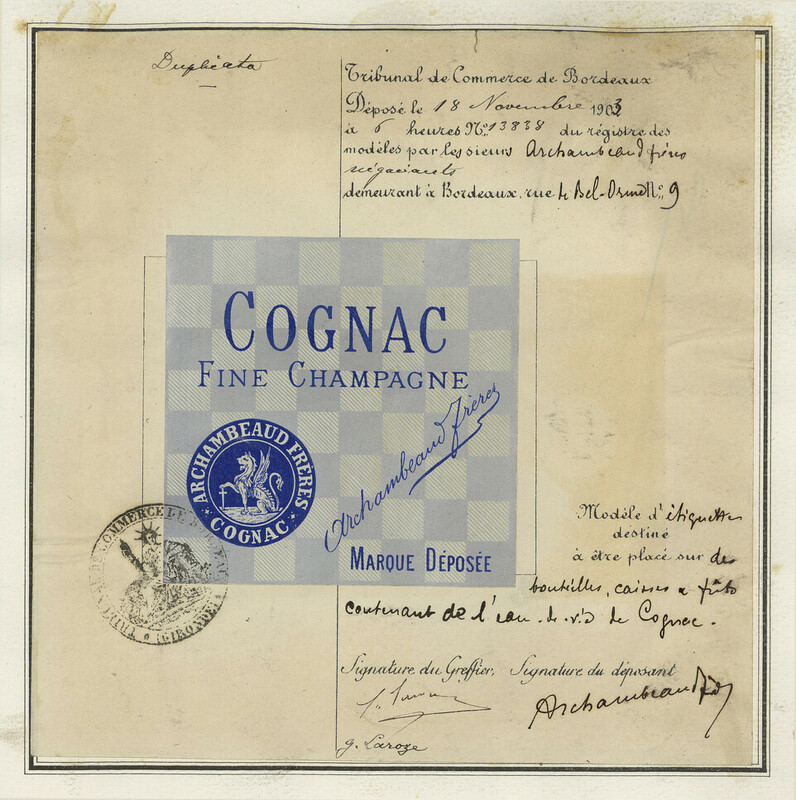 Duplicata
Tribunal de Commerce de Bordeaux
Déposé le 18 Novembre 1903
à 6 heures No. 13838 du régistre des
modèles par les sieurs Archambeaud frères
négociants
demeurant à Bordeaux, rue de Bel-Orme No. 9
COGNAC
FINE CHAMPAGNE
ARCHAMBEAUD FRÈRES
COGNAC
Archambeaud frères
MARQUE DÉPOSÉE
COMMERCE DE
(GIRONDE)
Modèle d'étiquettes
destiné
à être placé sur des
bouteilles, caisses & fûts
contenant de l'eau-de-vie de Cognac.
Signature du Greffier, Signature du déposant
Archambeaud
g. Laroze